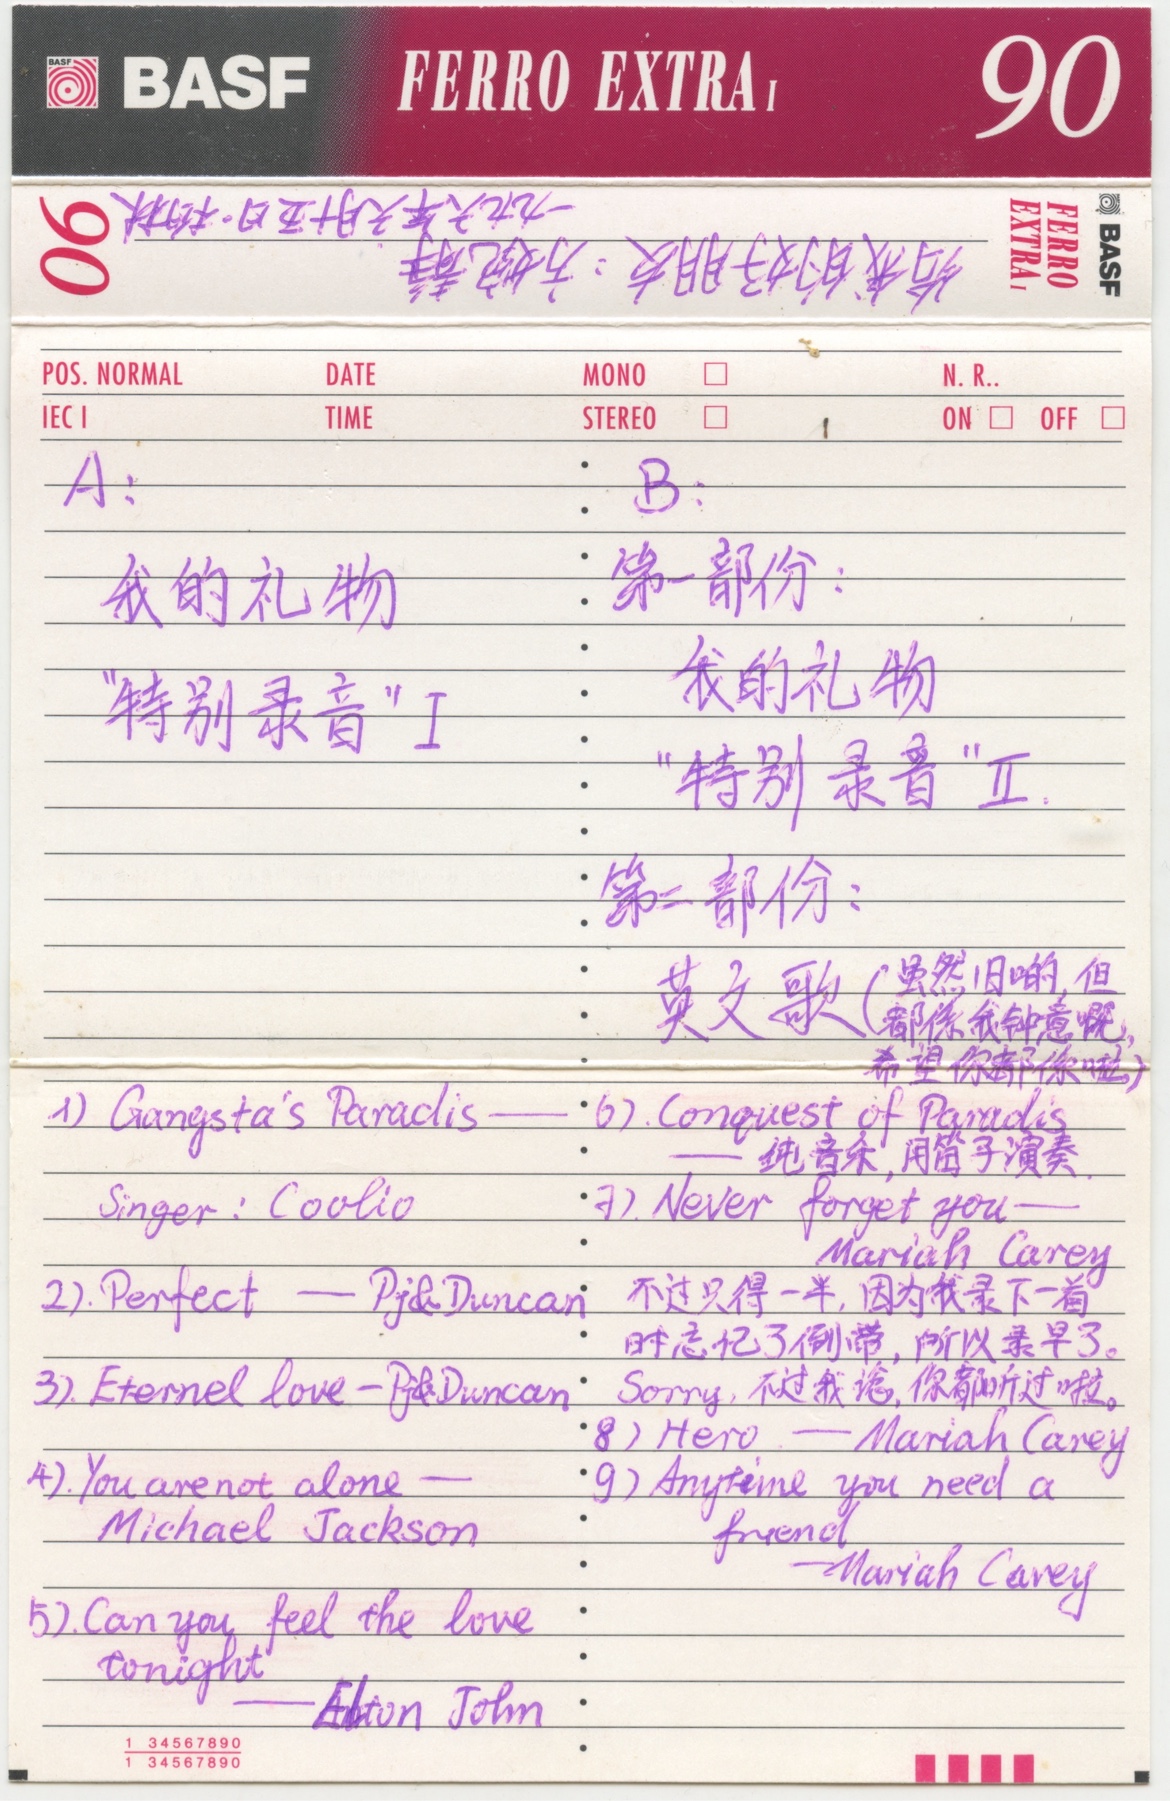 BASF BASF FERRO EXTRA I 90
90
给我的好朋友：方婉静
一九九六年六月十五日·
FERRO EXTRA I
BASF
POS. NORMAL DATE MONO N. R..
IEC I TIME STEREO ON OFF
A:
我的礼物
"特别录音" I
B:
第一部份:
我的礼物
"特别录音" II.
第二部份:
英文歌(虽然旧啲,但
都係我钟意嘅,
希望你都係啦,)
1) Gangsta's Paradis ——
Singer: Coolio
2). Perfect — Pj&Duncan
3). Eternel love — Pj&Duncan
4). You are not alone —
Michael Jackson
5). Can you feel the love
tonight
—— Elton John
6). Conquest of Paradis
—— 纯音乐,用笛子演奏.
7). Never forget you ——
Mariah Carey
不过只得一半,因为我录下一首
时忘记了倒带,所以录早了。
Sorry, 不过我谂,你都听过啦。
8) Hero —— Mariah Carey
9) Anytime you need a
friend
—— Mariah Carey
1 34567890
1 34567890